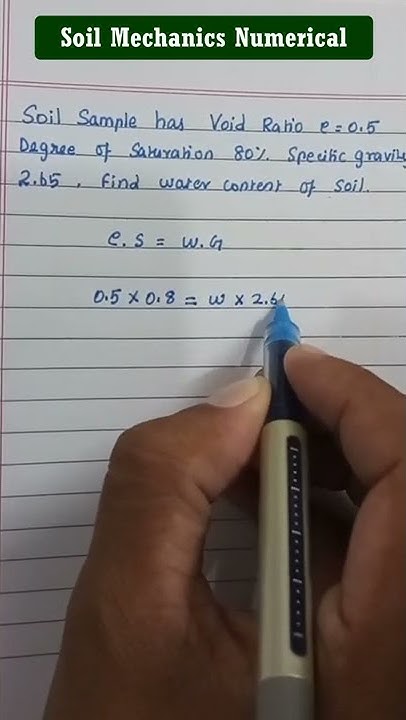 Soil Mechanics Numerical
Soil Sample has Void Ratio e = 0.5
Degree of Saturation 80%. Specific gravity
2.65 , Find water content of Soil.
e.s = w.G
0.5 × 0.8 = w × 2.6